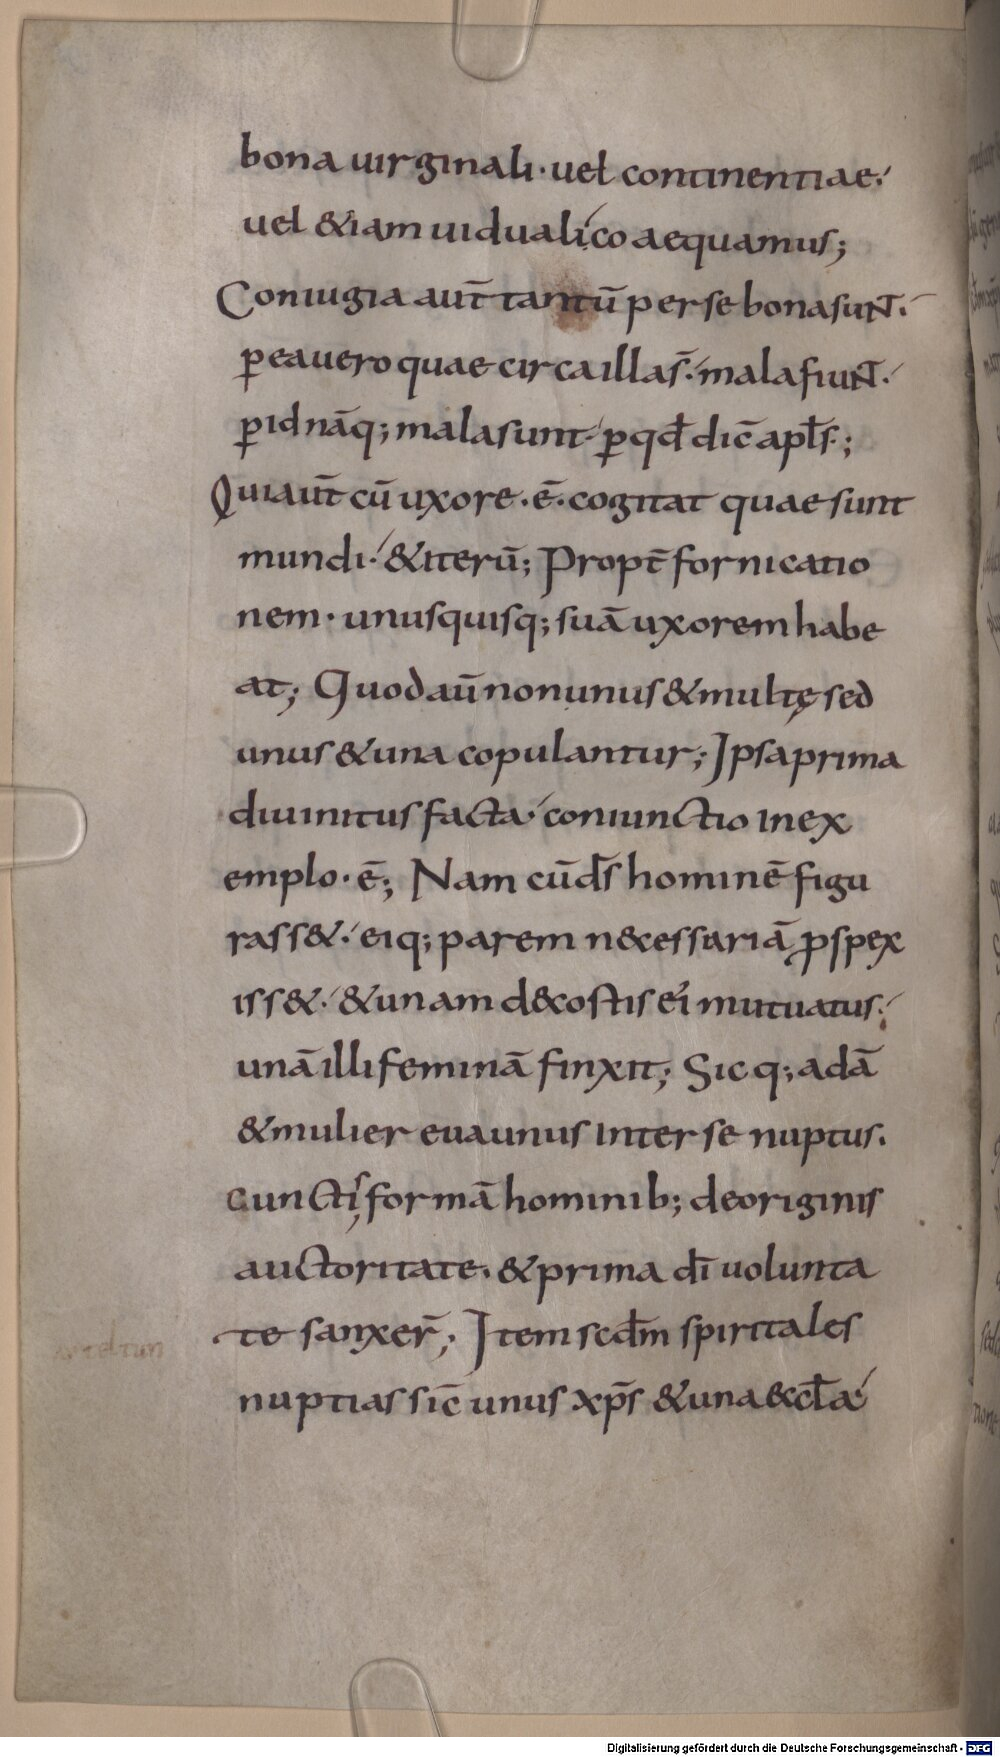 bona uirginali· uel continentiae·
uel &iam uiduali coaequamus;
Coniugia aut̄ tantū per se bona sunt·
p̲ ea uero quae circa illas̄· mala fiunt·
p̲ id nāq; mala sunt· p̲ qđ dic̄ apl̄s·;
Qui aut̄ cū uxore·ē· cogitat quae sunt
mundi· & iterū; Propt̄ fornicatio
nem· unusquisq; suā uxorem habe
at; Quod aū non unus & multę sed
unus & una copulantur; Ipsa prima
diuinitus facta· coniunctio in ex
emplo·ē; Nam cū ds̄ hominē figu
rass&· eiq; parem n&cessariā ꝓspex
iss&· & unam d& costis ei mutuatus·
unā illi feminā finxit; Sicq; adā
& mulier eua unus inter se nuptus·
cunctis formā hominib; de originis
auctoritate· & prima dī uolunta
te sanxer̄; Item scđm spiritales
nuptias sic̄ unus xp̄s & una &cl̄a·
Digitalisierung gefördert durch die Deutsche Forschungsgemeinschaft - DFG